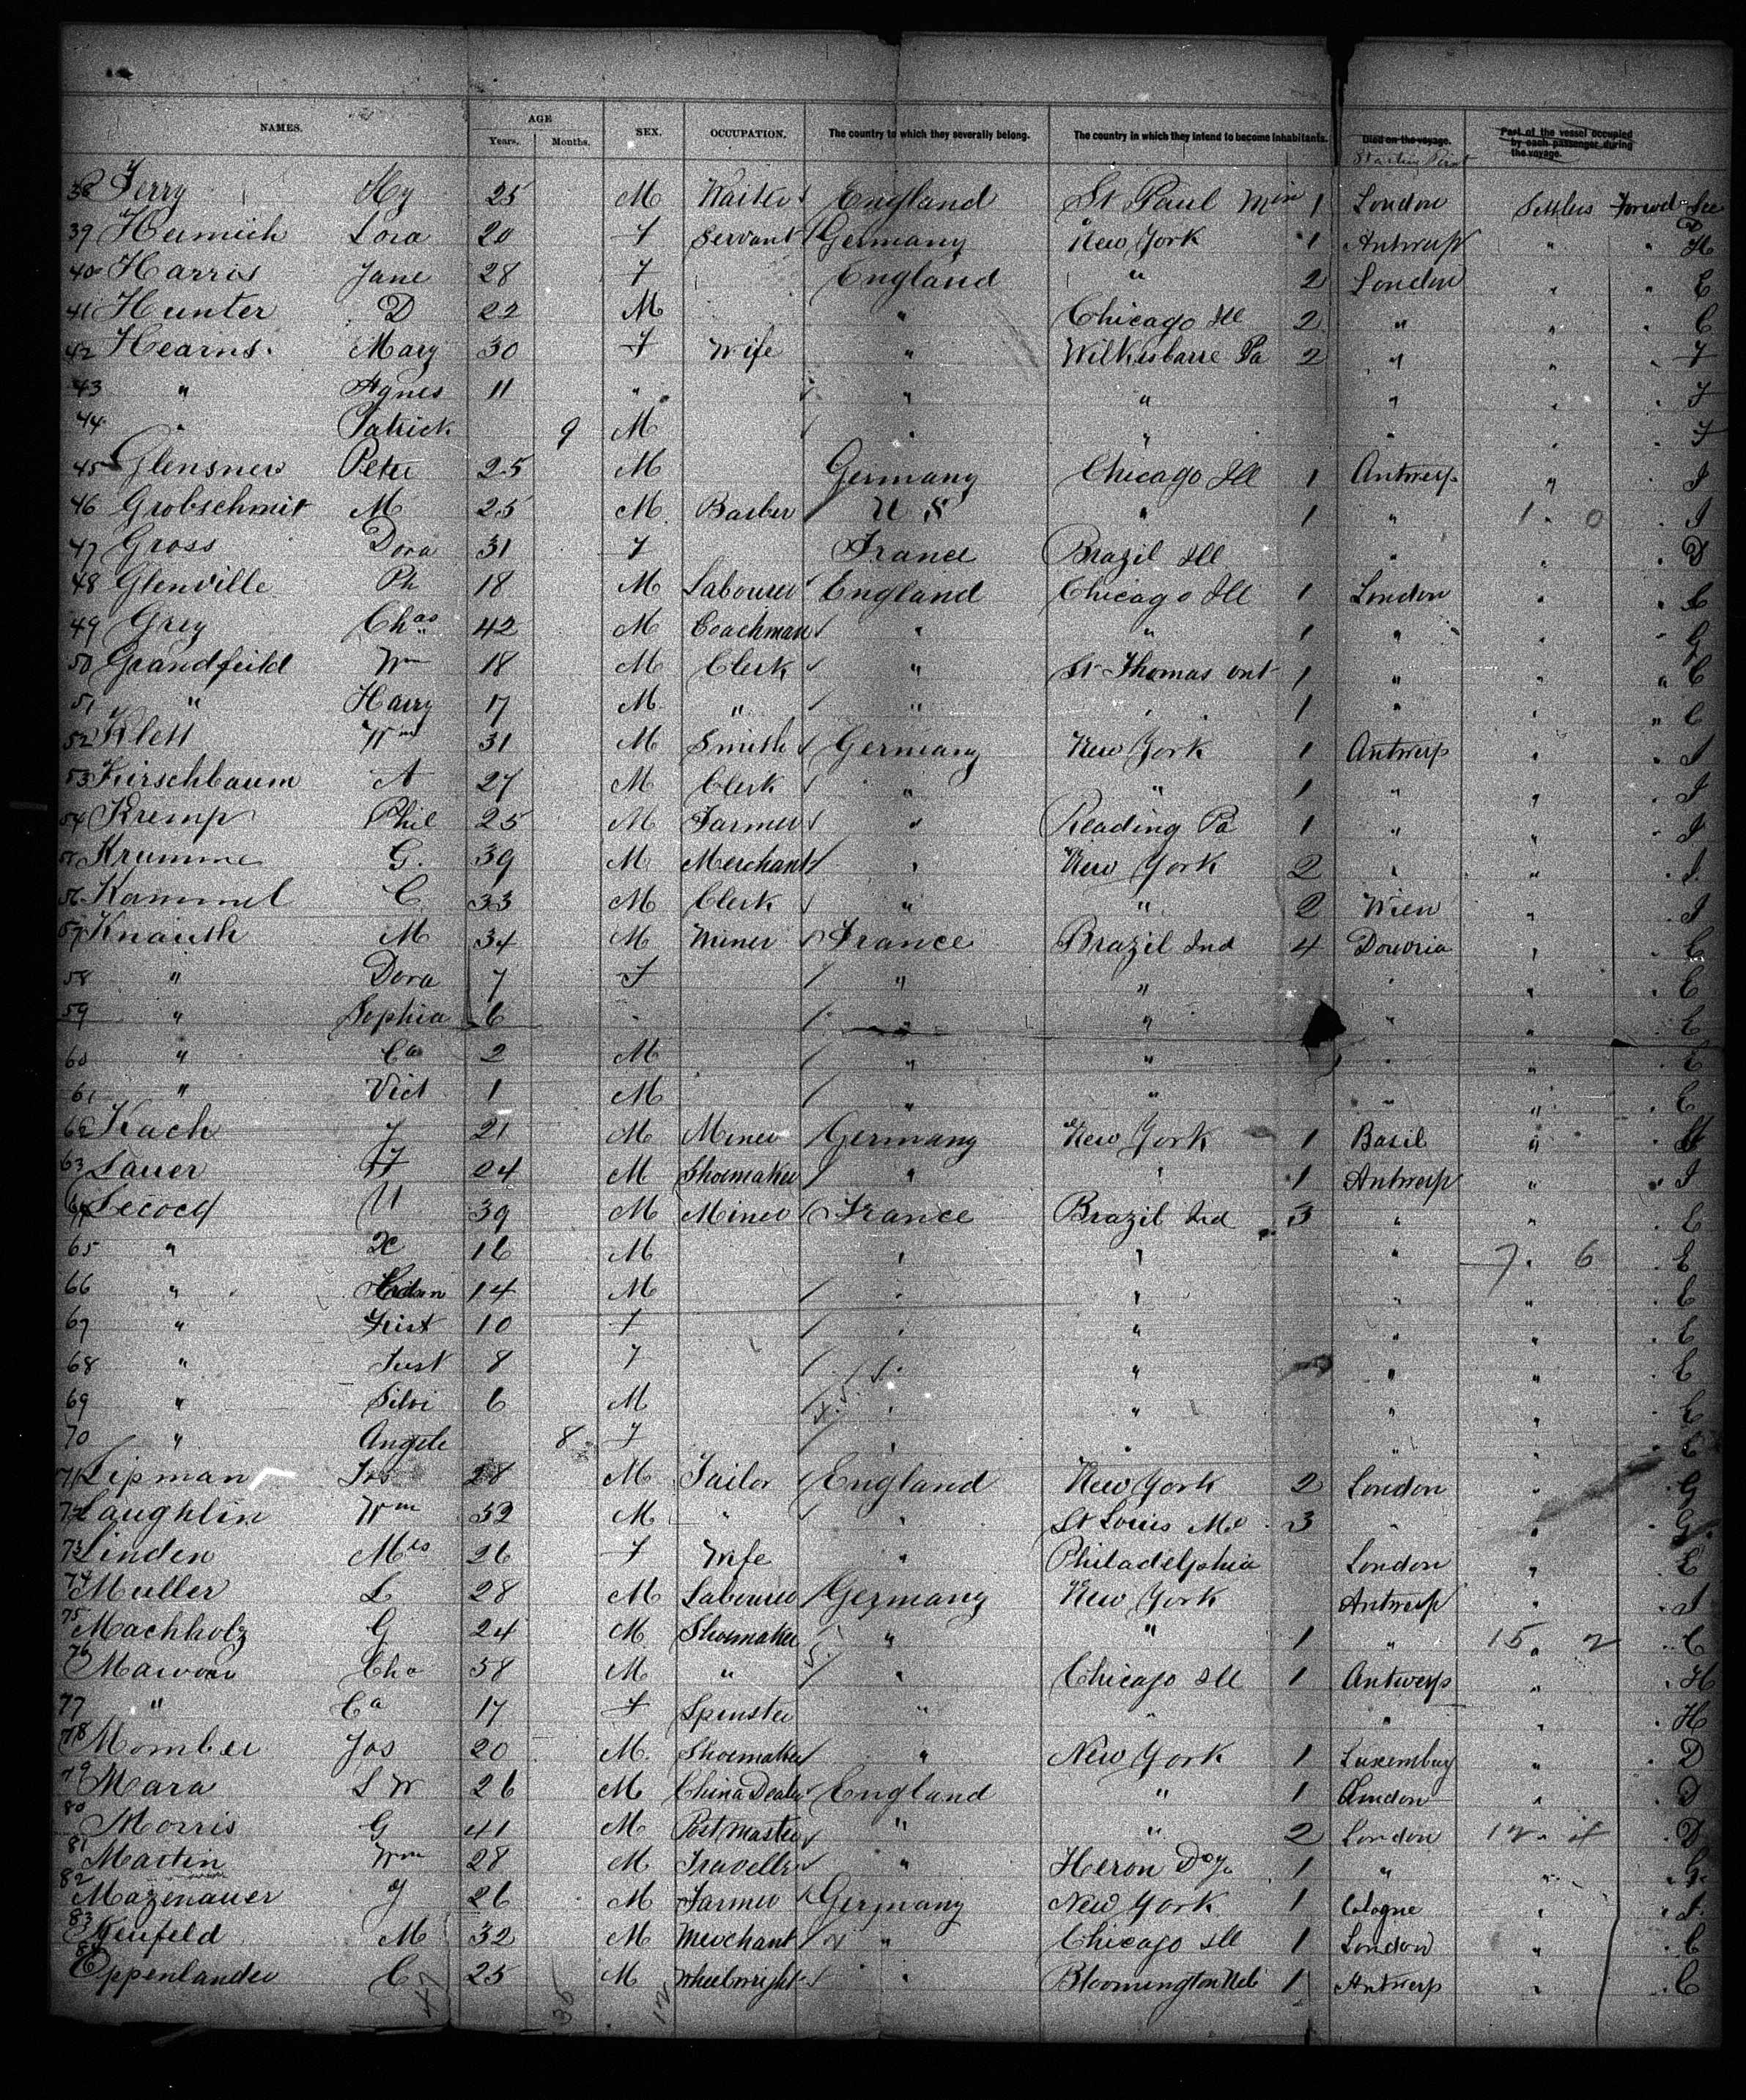 NAMES. AGE SEX. OCCUPATION. The country to which they severally belong. The country in which they intend to become inhabitants. Died on the voyage. Part of the vessel occupied by each passenger during the voyage.
Years. Months. Starting Point
38 Ferry Hy 25 M Waiter England St Paul Min 1 London
39 Lora 20 F Servant Germany New York 1 Antwerp " " H
40 Harris Jane 28 F England " 2 London " " C
41 Hunter D 22 M " Chicago Ill 2 " " " C
42 Hearns Mary 30 F Wife " Wilkesbarre Pa 2 " " " F
43 " Agnes 11 " " " " " " F
44 " Patrick 9 M " " " " " F
45 Peter 25 M Germany Chicago Ill 1 Antwerp " " I
46 Grobschmit M 25 M Barber U S " 1 " 1 " 0 " I
47 Gross Dora 31 F France Brazil Ill " " " D
48 Glenville Ph 18 M Labourer England Chicago Ill 1 London " " C
49 Grey Chas 42 M Coachman " " 1 " " " G
50 Grandfeild Wm 18 M Clerk " St Thomas Ont 1 " " " C
51 " Harry 17 M " " " 1 " " " C
52 Klett Wm 31 M Smith Germany New York 1 Antwerp " " I
53 Kirschbaum A 27 M Clerk " " 1 " " " I
54 Kremp Phil 25 M Farmer " Reading Pa 1 " " " I
55 Krumme G. 39 M Merchant " New York 2 " " " I
56 Kammel C 33 M Clerk " " 2 Wien " " I
57 Knauth M 34 M Miner France Brazil Ind 4 " " C
58 " Dora 7 F " " " " " C
59 " Sophia 6 " " " " " " C
60 " Ca 2 M " " " " " C
61 " Vict 1 M " " " " " C
62 Kuch J 21 M Miner Germany New York 1 Basil " "
63 Lauer H 24 M Shoemaker " " 1 Antwerp " " I
64 Lecocq 39 M Miner France Brazil Ind 3 " " " C
65 " 16 M " " " 7 " 6 " E
66 " 14 M " " " " " E
67 " 10 F " " " " " E
68 " Just 8 F " " " " " E
69 " Silvi 6 M " " " " " E
70 " Angele 8 F " " " " " E
71 Lipman Jos 28 M Tailor England New York 2 London " " G
72 Laughlin Wm 32 M " " St Louis Mo 3 " " " G
73 Linden Mrs 26 F Wife " Philadelphia London " " E
74 Muller L 28 M Labourer Germany New York Antwerp " " I
75 Machholz G 24 M Shoemaker " " 1 " 15 " 2 " C
76 Cha 38 M " " Chicago Ill 1 Antwerp " " H
77 " Ca 17 F Spinster " " " " " H
78 Momber Jos 20 M Shoemaker " New York 1 Luxemburg " " D
79 Mara S W 26 M China Dealer England " 1 London " " D
80 Morris G 41 M Post Master " " 2 London 12 " 4 " D
81 Martin Wm 28 M Traveller " Heron 1 " " " G
82 Mazenauer J 26 M Farmer Germany New York 1 Cologne " " I
83 Neufeld M 32 M Merchant " Chicago Ill 1 London " " C
84 Oppenlander C 25 M Wheelwright " Bloomington Neb 1 Antwerp " " C